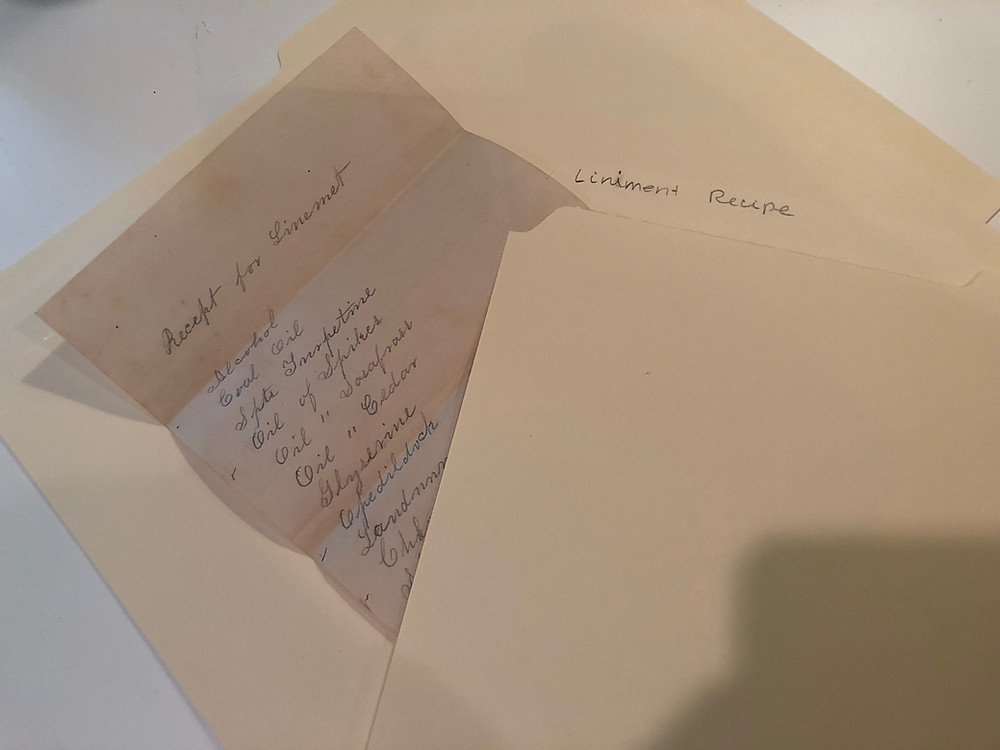 Liniment Recipe
Recept for Linemet
Alcohol
Coal Oil
Spts Turpetine
Oil of Spikes
Oil " Sasafrass
Oil " Cedar
Glyserine
Opedildock